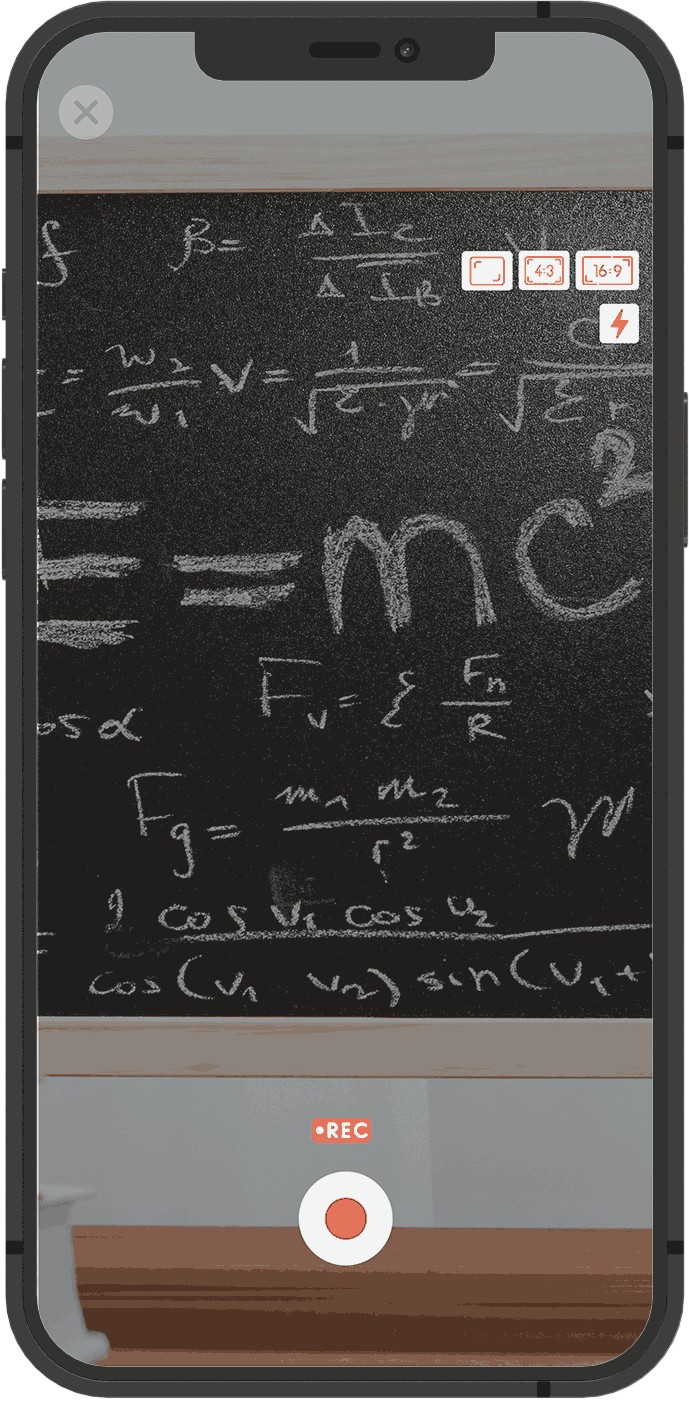 f β= Δ I_C / Δ I_B
4:3 16:9
= w_2 / w_1 V= 1 / √ε·γμ = c / √ε r
E = mc²
F_v = { F_n / R
os α
F_g = m_1 m_2 / r² γμ
2 cos v_1 cos v_2
= cos(v_1 v_2) sin(v_1+
REC